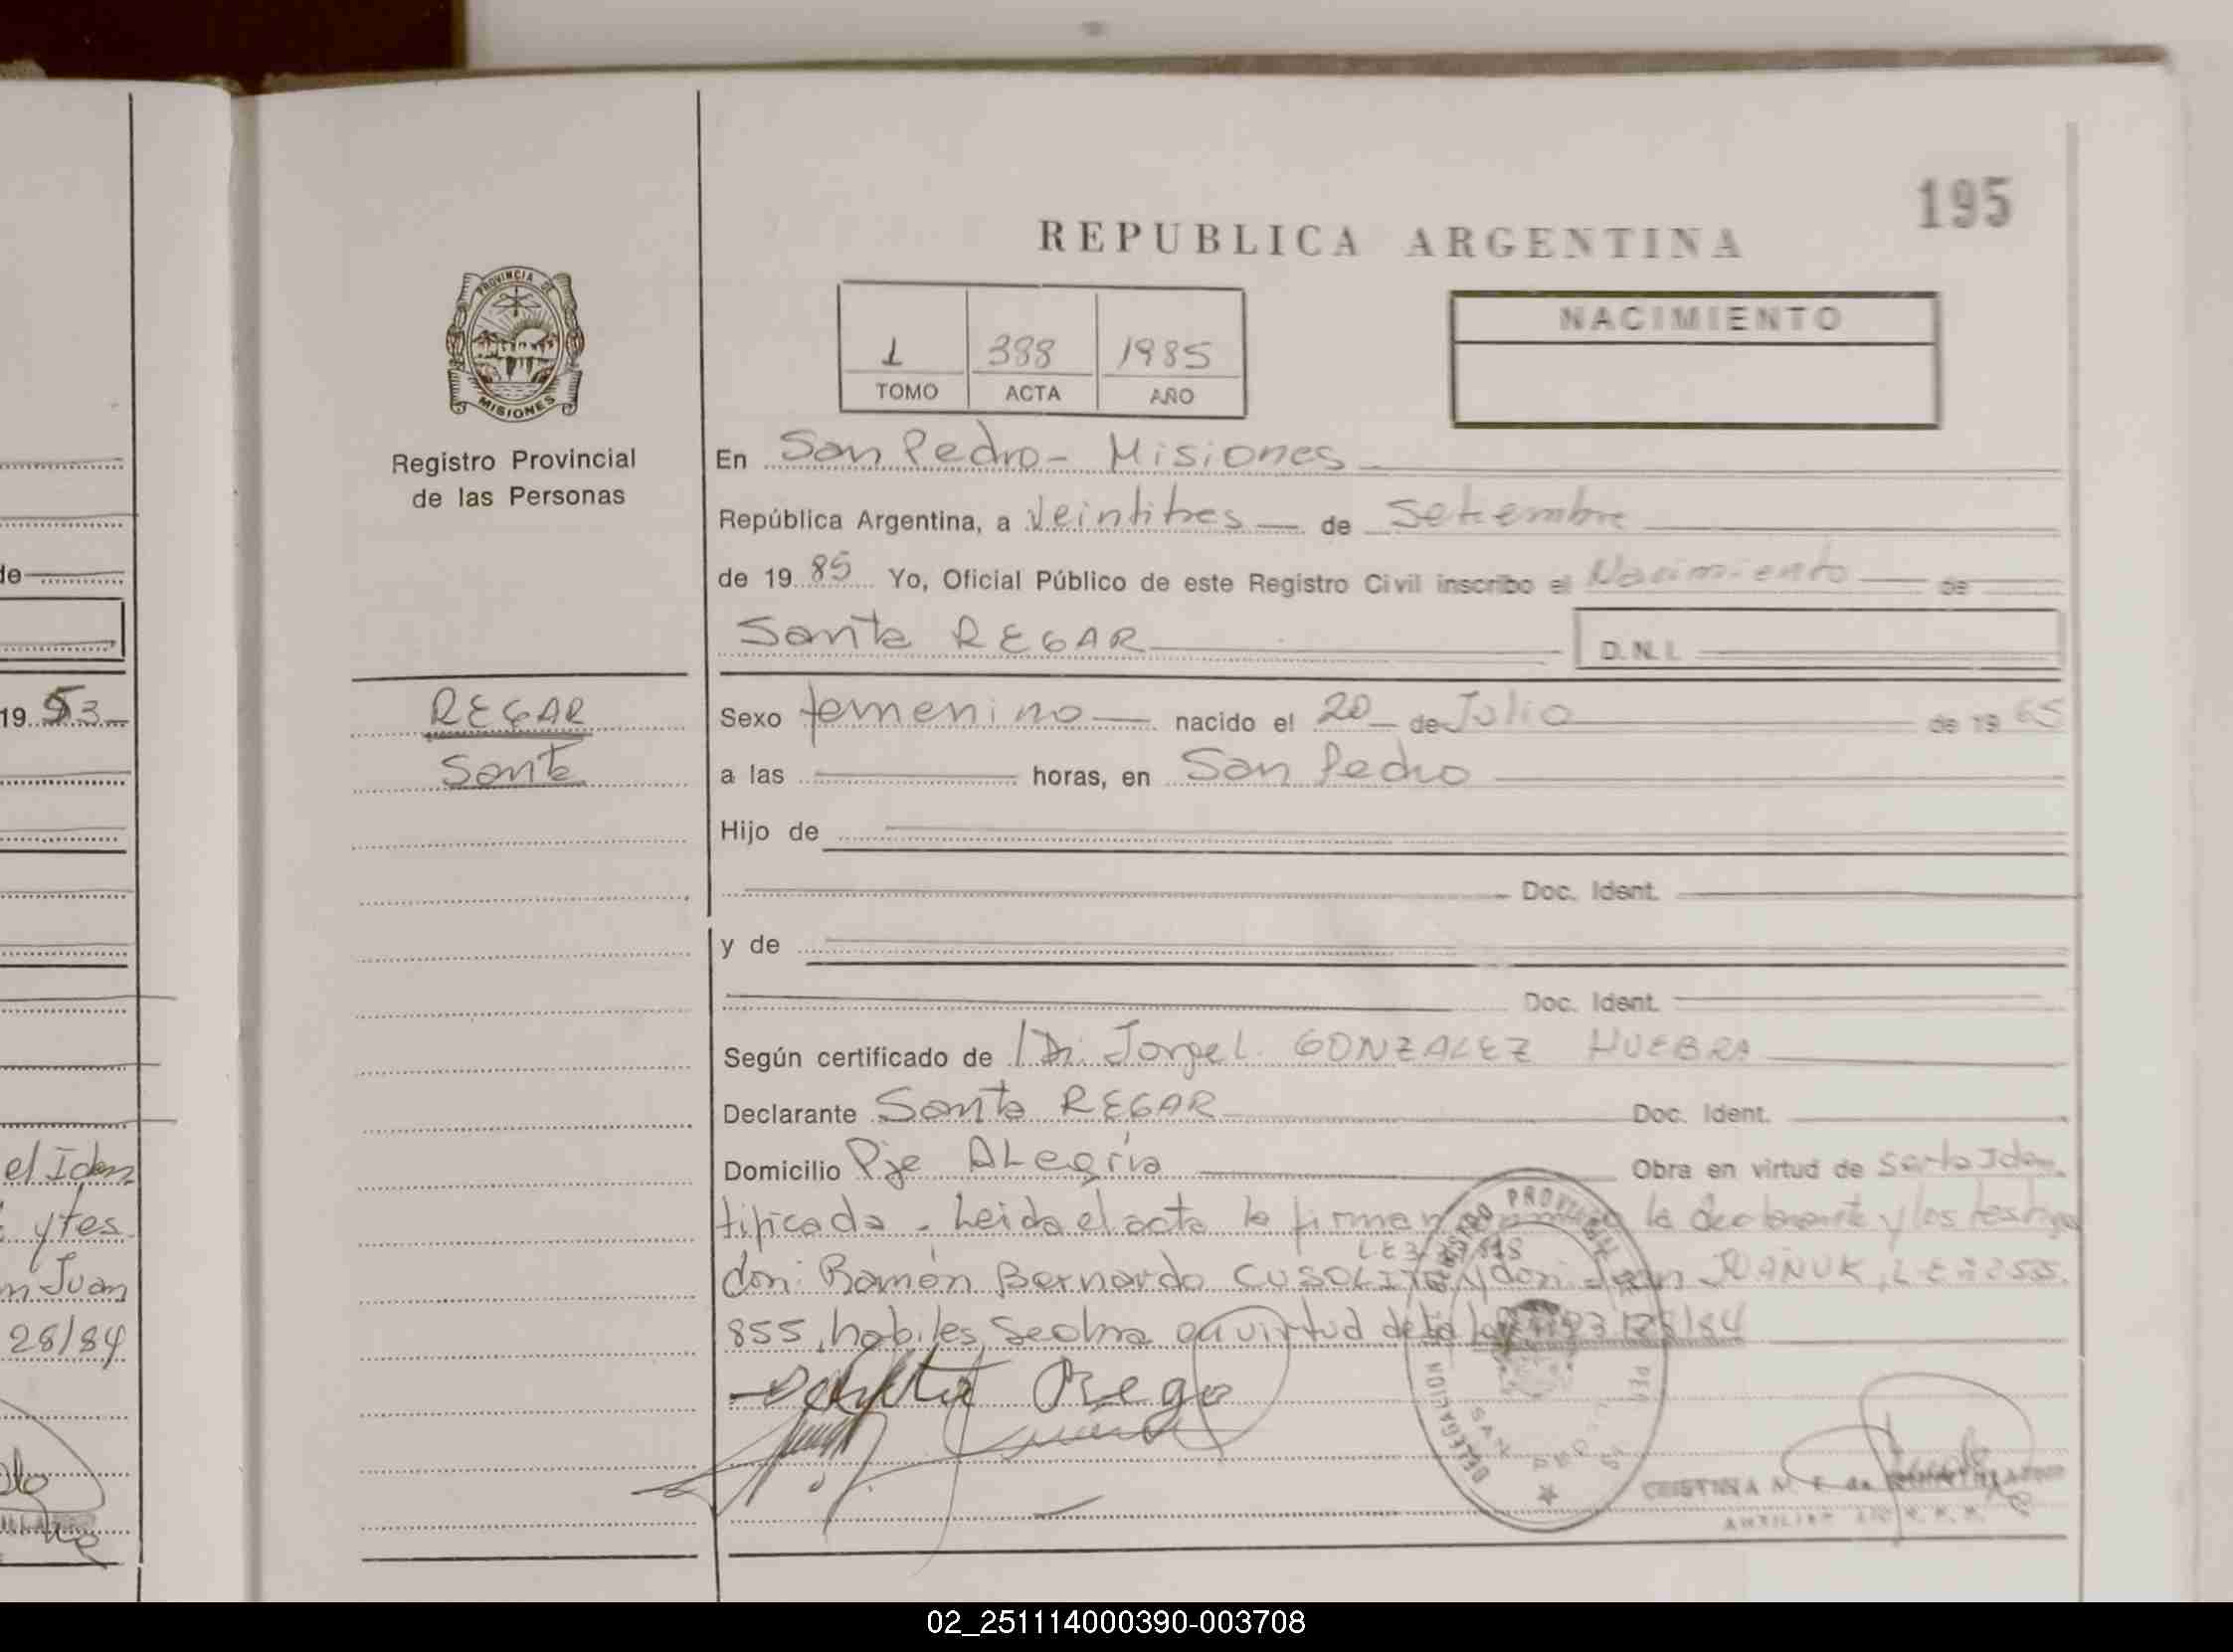 195
REPUBLICA ARGENTINA
PROVINCIA DE
MISIONES
Registro Provincial
de las Personas
1 388 1985
TOMO ACTA AÑO
NACIMIENTO
En San Pedro - Misiones
República Argentina, a Veintitres de Setiembre
de 19 85 Yo, Oficial Público de este Registro Civil inscribo el Nacimiento de
Santa REGAR
D.N.I.
de
19 53
REGAR
Santa
Sexo femenino nacido el 20 de Julio de 19 65
a las horas, en San Pedro
Hijo de
Doc. Ident.
y de
Doc. Ident.
Según certificado de Dr. Jorge L. GONZALEZ HUEBRA
Declarante Santa REGAR Doc. Ident.
Domicilio Pje ALegria Obra en virtud de ser la Iden
tificada - Leida el acta la firman la declarante y los testigos
don: Ramón Bernardo don: Juan LE 7255.
855, habiles. Se obra en virtud de la 28/84
el Iden
y tes
n Juan
28/84
REGISTRO PROVINCIAL
DELEGACION
SAN PEDRO
CRISTINA
AUXILIAR
02_251114000390-003708